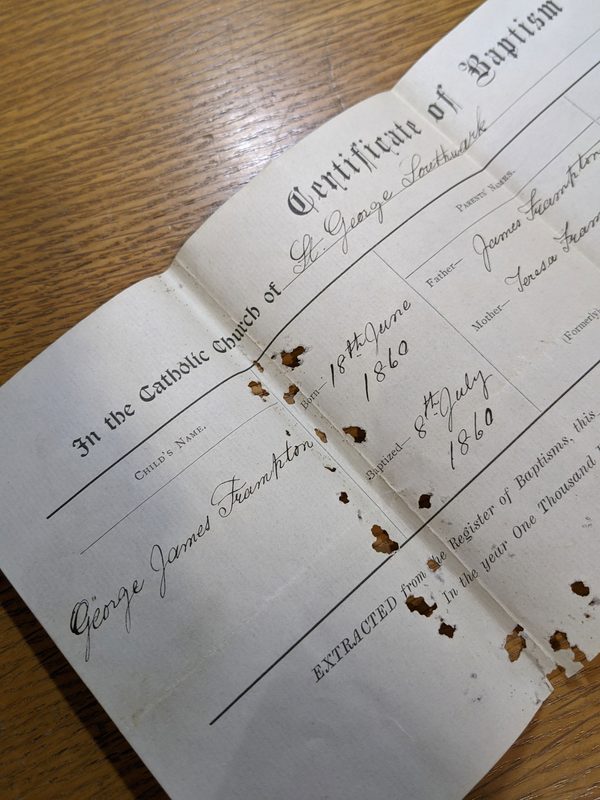 Certificate of Baptism
In the Catholic Church of St. George Southwark
CHILD'S NAME.
PARENTS' NAMES.
George James Frampton
Born— 18th June
1860
Baptized— 8th July
1860
Father— James Frampton
Mother— Teresa
(Formerly)
EXTRACTED from the Register of Baptisms, this
In the year One Thousand